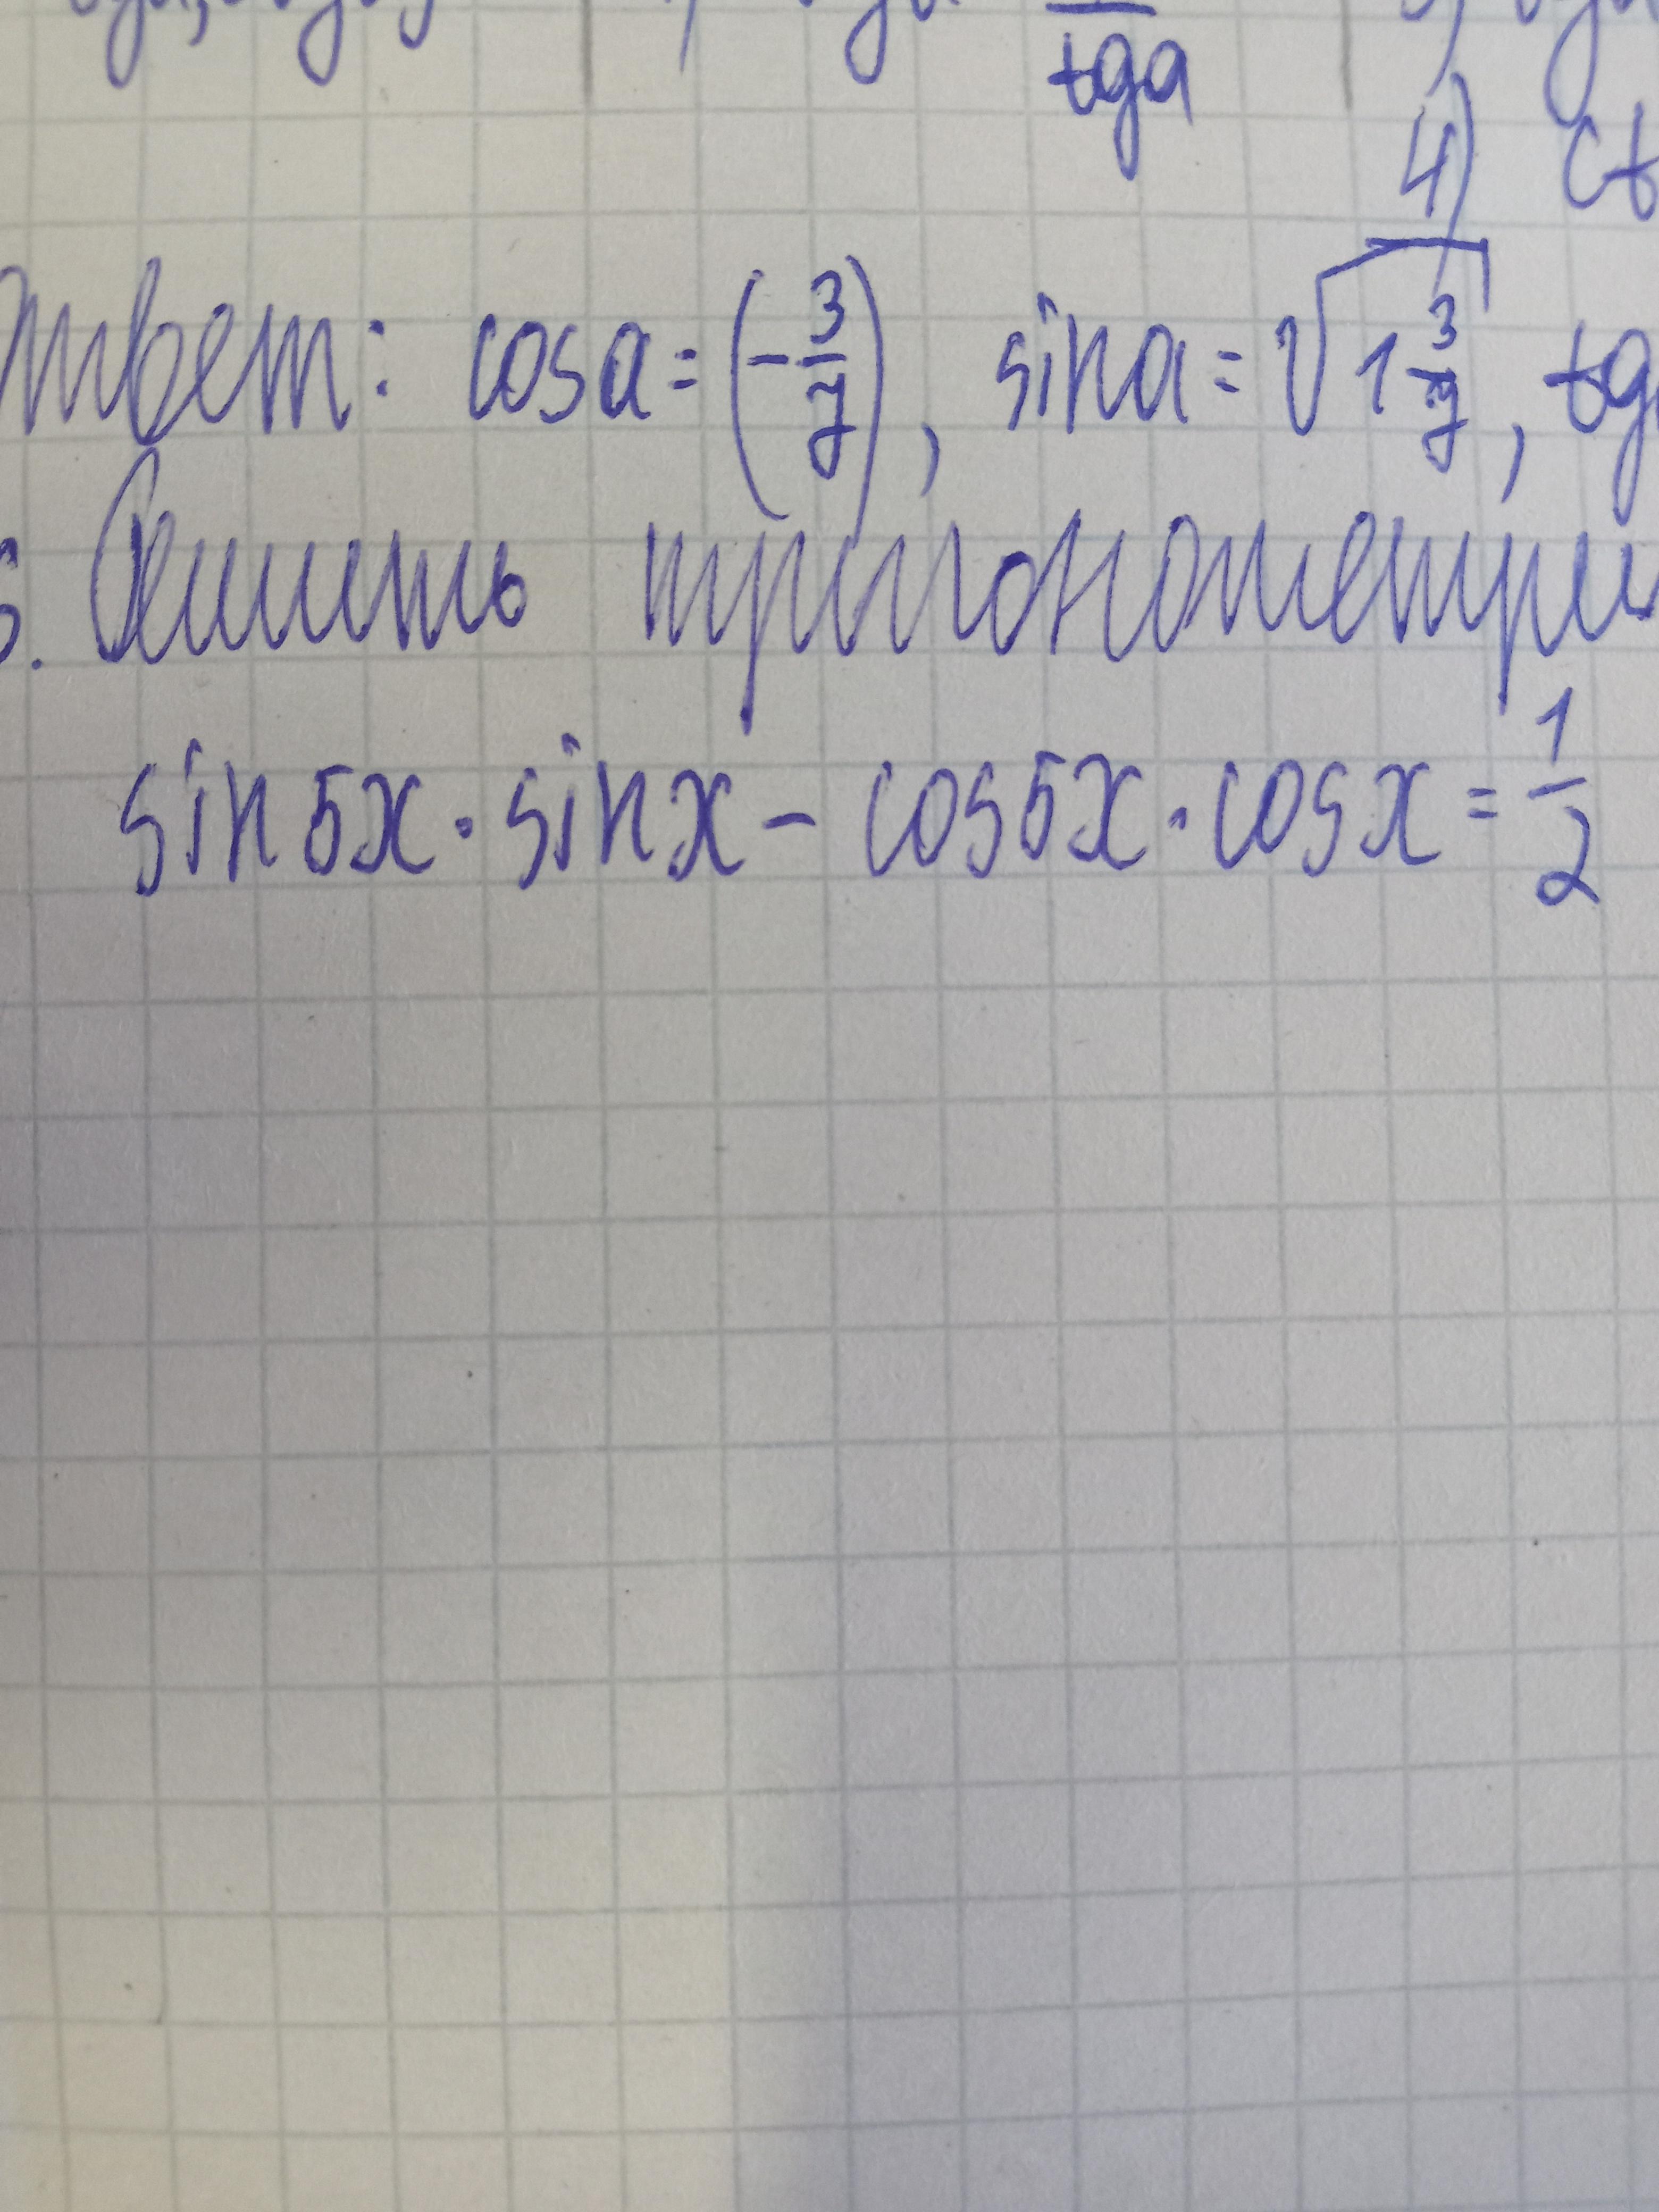 tga
4) ct
Ответ: cos a = (-3/7), sin a = √1 3/7, tg
5. Решить тригонометри
sin 5x · sin x - cos 5x · cos x = 1/2